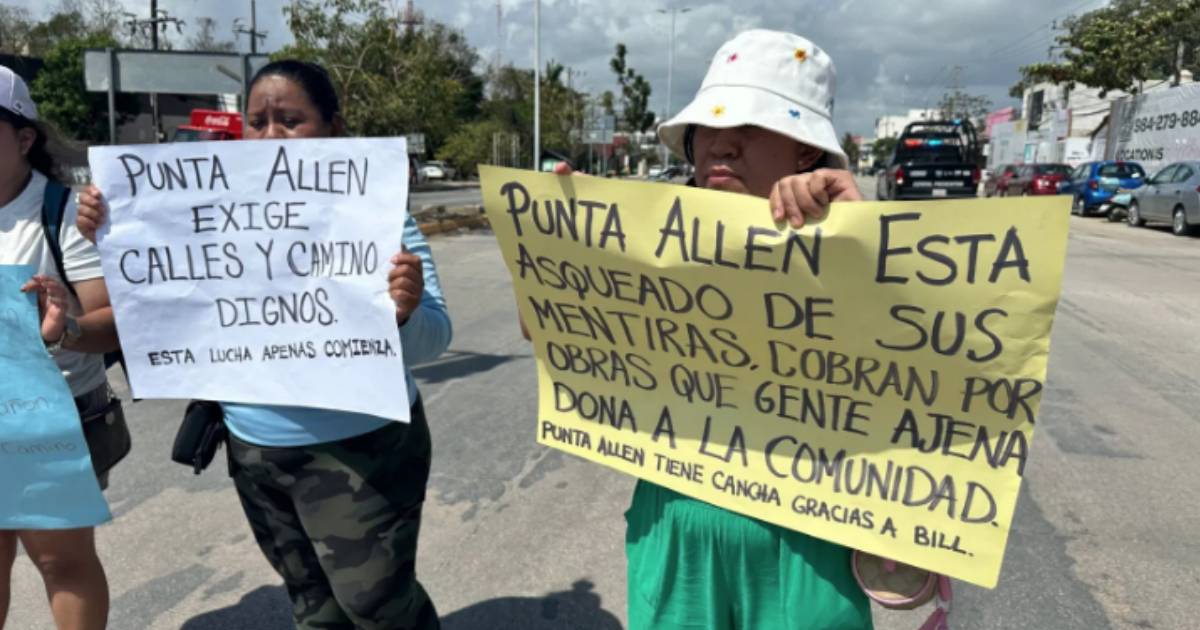 PUNTA ALLEN
EXIGE
CALLES Y CAMINO
DIGNOS.
ESTA LUCHA APENAS COMIENZA.
PUNTA ALLEN ESTA
ASQUEADO DE SUS
MENTIRAS, COBRAN POR
OBRAS QUE GENTE AJENA
DONA A LA COMUNIDAD.
PUNTA ALLEN TIENE CANCHA GRACIAS A BILL.
Camino
Coca-Cola
984-279-884
LOCATION IS